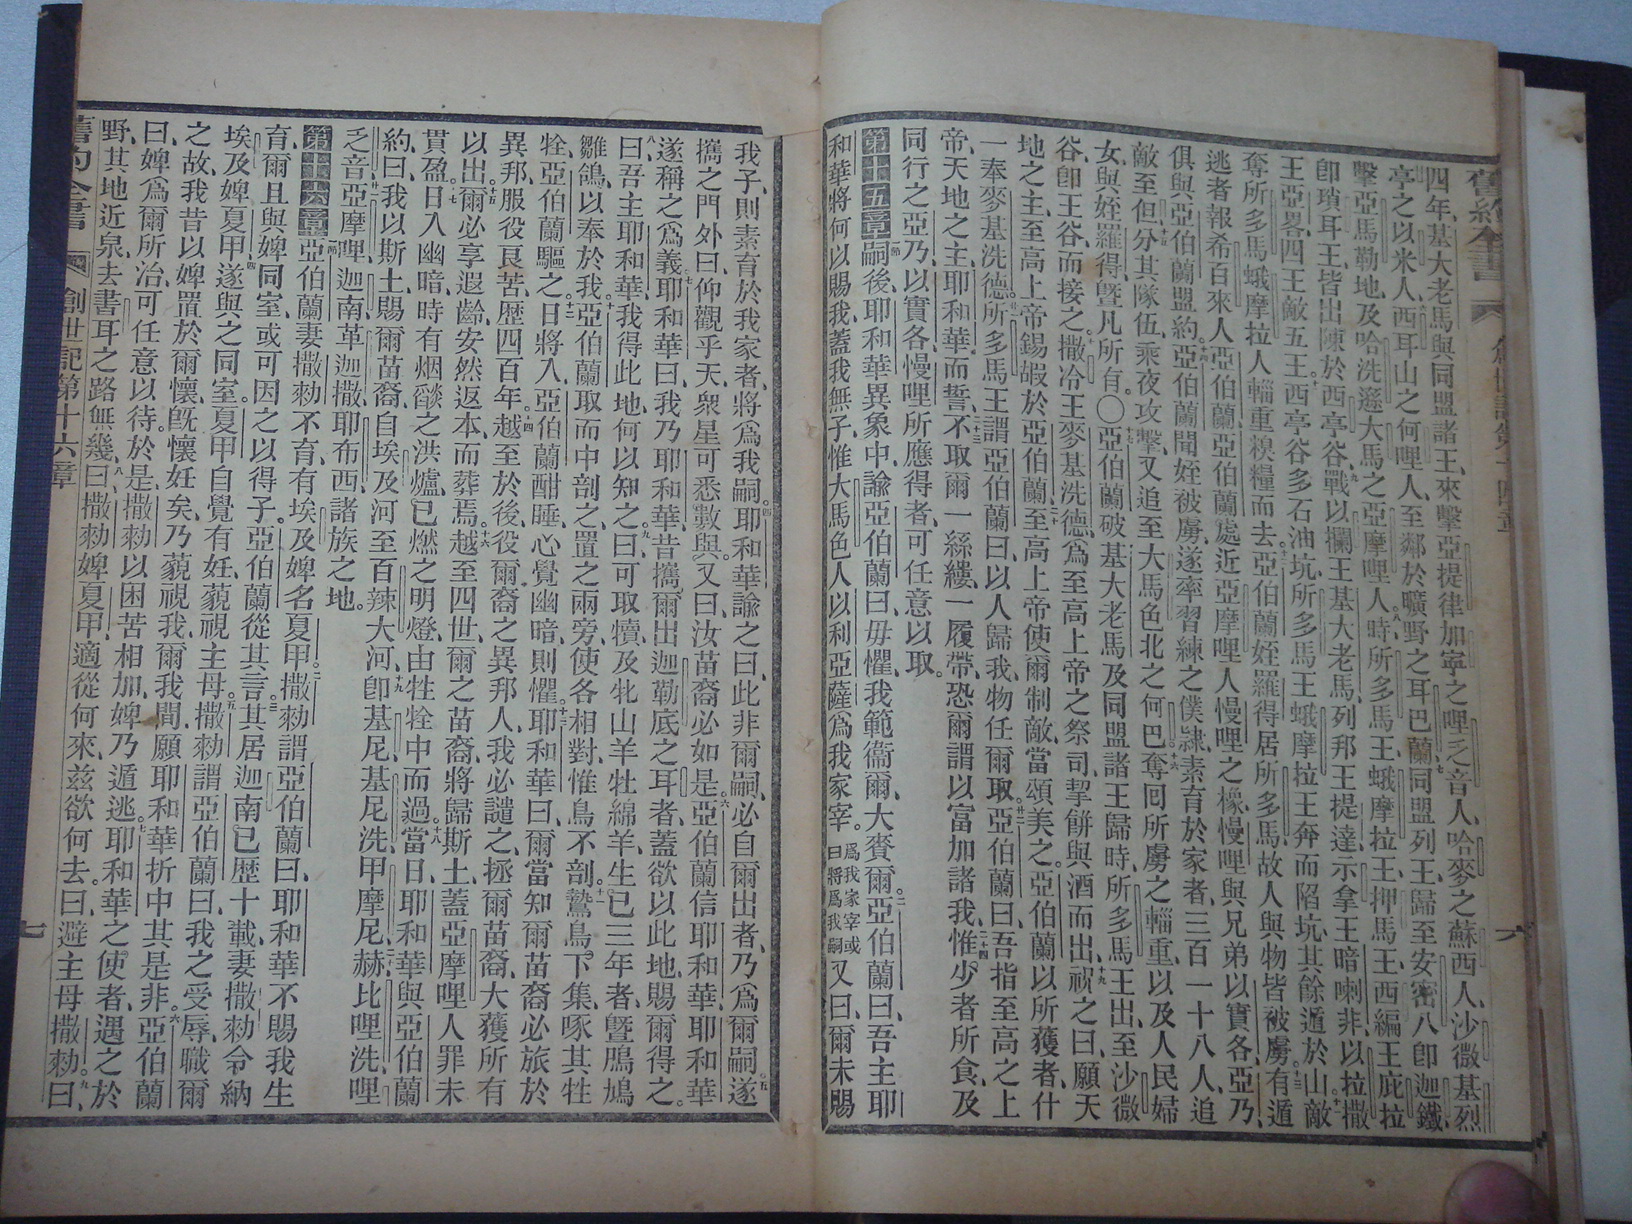 舊約全書 創世記第十四章 六
四年、基大老馬與同盟諸王、來擊亞提律加寧之哩乏音人、哈麥之蘇西人、沙微基烈
亭之以米人、西耳山之何哩人、至鄰於曠野之耳巴蘭、七同盟列王、歸至安密八卽迦鐵、
擊亞馬勒地、及哈洗遜大馬之亞摩哩人、八時所多馬王、蛾摩拉王、押馬王、西編王、庇拉
卽瑣耳王、皆出陳於西亭谷、九戰以攔王基大老馬、列邦王提達、示拿王暗喇非、以拉撒
王亞畧、四王敵五王。十西亭谷多石油坑、所多馬王、蛾摩拉王奔而陷坑、其餘遁於山、十一敵
奪所多馬蛾摩拉人輜重糗糧而去。十二亞伯蘭姪羅得居所多馬、故人與物皆被虜。十三有遁
逃者、報希百來人亞伯蘭、亞伯蘭處近亞摩哩人慢哩之橡、慢哩與兄弟以實各、亞乃、
俱與亞伯蘭盟約。十四亞伯蘭聞姪被虜、遂率習練之僕隷、素育於家者、三百一十八人、追
敵至但、十五分其隊伍、乘夜攻擊、又追至大馬色北之何巴、十六奪囘所虜之輜重、以及人民婦
女、與姪羅得、曁凡所有。〇十七亞伯蘭破基大老馬及同盟諸王歸時、所多馬王出至沙微
谷、卽王谷、而接之。十八撒冷王麥基洗德、爲至高上帝之祭司、挈餅與酒而出、十九祝之曰、願天
地之主、至高上帝、錫嘏於亞伯蘭、二十至高上帝使爾制敵、當頌美之。亞伯蘭以所獲者、什
一奉麥基洗德。廿一所多馬王謂亞伯蘭曰、以人歸我、物任爾取。廿二亞伯蘭曰、吾指至高之上
帝、天地之主、耶和華而誓、二十三不取爾一絲縷、一履帶、恐爾謂以富加諸我、二十四惟少者所食、及
同行之亞乃、以實各、慢哩所應得者、可任意以取。
第十五章 一節嗣後、耶和華異象中、諭亞伯蘭曰、毋懼、我範衞爾、大賚爾。二亞伯蘭曰、吾主耶
和華、將何以賜我、蓋我無子、惟大馬色人以利亞薩爲我家宰。爲我家宰或曰將爲我嗣三又曰、爾未賜
我子、則素育於我家者、將爲我嗣。四耶和華諭之曰、此非爾嗣、必自爾出者、乃爲爾嗣。五遂
攜之門外曰、仰觀乎天、衆星可悉數與。又曰、汝苗裔必如是。六亞伯蘭信耶和華、耶和華
遂稱之爲義。七耶和華曰、我乃耶和華、昔攜爾出迦勒底之耳者、蓋欲以此地賜爾得之。
八曰、吾主耶和華、我得此地、何以知之。九曰、可取犢及牝山羊、牡綿羊、生已三年者、曁鳲鳩
雛鴿、以奉於我。十亞伯蘭取而中剖之、置之兩旁、使各相對、惟鳥不剖。十一鷙鳥下集、啄其牲
牷、亞伯蘭驅之。十二日將入、亞伯蘭酣睡、心覺幽暗則懼。十三耶和華曰、爾當知爾苗裔必旅於
異邦、服役艮苦、歷四百年、十四越至於後、役爾裔之異邦人、我必譴之、拯爾苗裔、大獲所有
以出。十五爾必享遐齡、安然返本而葬焉。十六越至四世、爾之苗裔將歸斯土、蓋亞摩哩人罪未
貫盈。十七日入幽暗時、有烟燄之洪爐、已燃之明燈、由牲牷中而過。十八當日耶和華與亞伯蘭
約曰、我以斯土賜爾苗裔、自埃及河至百辣大河、十九卽基尼、基尼洗、甲摩尼、二十赫、比哩洗、哩
乏音、廿一亞摩哩、迦南、革迦撒、耶布西諸族之地。
第十六章 一節亞伯蘭妻撒勑不育、有埃及婢名夏甲。二撒勑謂亞伯蘭曰、耶和華不賜我生
育、爾且與婢同室、或可因之以得子。亞伯蘭從其言。三其居迦南已歷十載、妻撒勑令納
埃及婢夏甲、四遂與之同室。夏甲自覺有妊、藐視主母。五撒勑謂亞伯蘭曰、我之受辱、職爾
之故、我昔以婢置於爾懷、旣懷妊矣、乃藐視我、爾我間、願耶和華折中其是非。六亞伯蘭
曰、婢爲爾所治、可任意以待。於是撒勑以困苦相加、婢乃遁逃。七耶和華之使者遇之於
野、其地近泉、去書耳之路無幾。八曰、撒勑婢夏甲、適從何來、茲欲何去。曰、避主母撒勑。九曰、
舊約全書 創世記第十六章 七